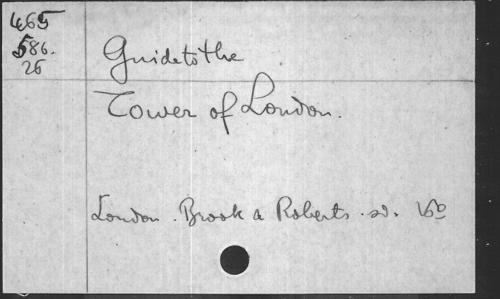 465
586.
26
Guide to the
Tower of London.
London. Brook & Roberts. sd. 16º